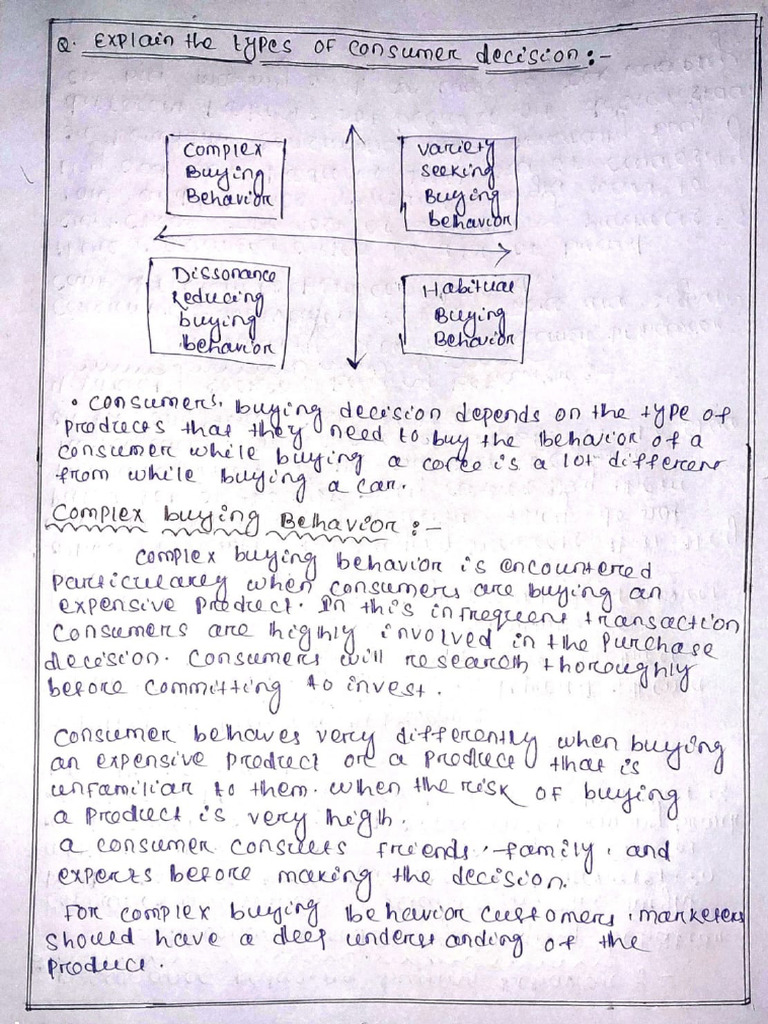 Q. Explain the types of consumer decision:-
Complex
Buying
Behavior
Variety
seeking
Buying
behavior
Dissonance
Reducing
buying
behavior
Habitual
Buying
Behavior
• Consumers. buying decision depends on the type of
products that they need to buy the behavior of a
consumer while buying a is a lot different
from while buying a car.
Complex buying Behavior:-
Complex buying behavior is encountered
particularly when consumers are buying an
expensive product. In this infrequent transaction
consumers are highly involved in the purchase
decision. Consumers will research thoroughly
before committing to invest.
Consumer behaves very differently when buying
an expensive product or a product that is
unfamiliar to them. when the risk of buying
a product is very high.
a consumer consults friends, family, and
experts before making the decision.
For complex buying behavior customers, marketers
should have a deep understanding of the
product.